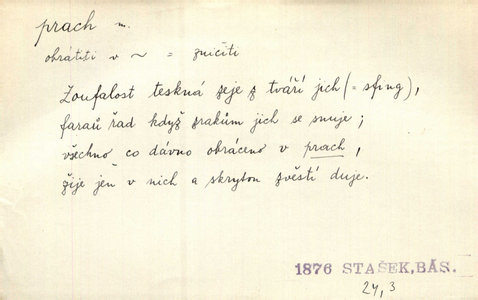 prach m.
obrátiti v ~ = zničiti
Zoufalost teskná zeje z tváří jich (= sfing),
faraů řad když zrakům jich se snuje;
všechno co dávno obráceno v prach,
žije jen v nich a skrytou zvěstí duje.
1876 STAŠEK, BÁS.
24, 3